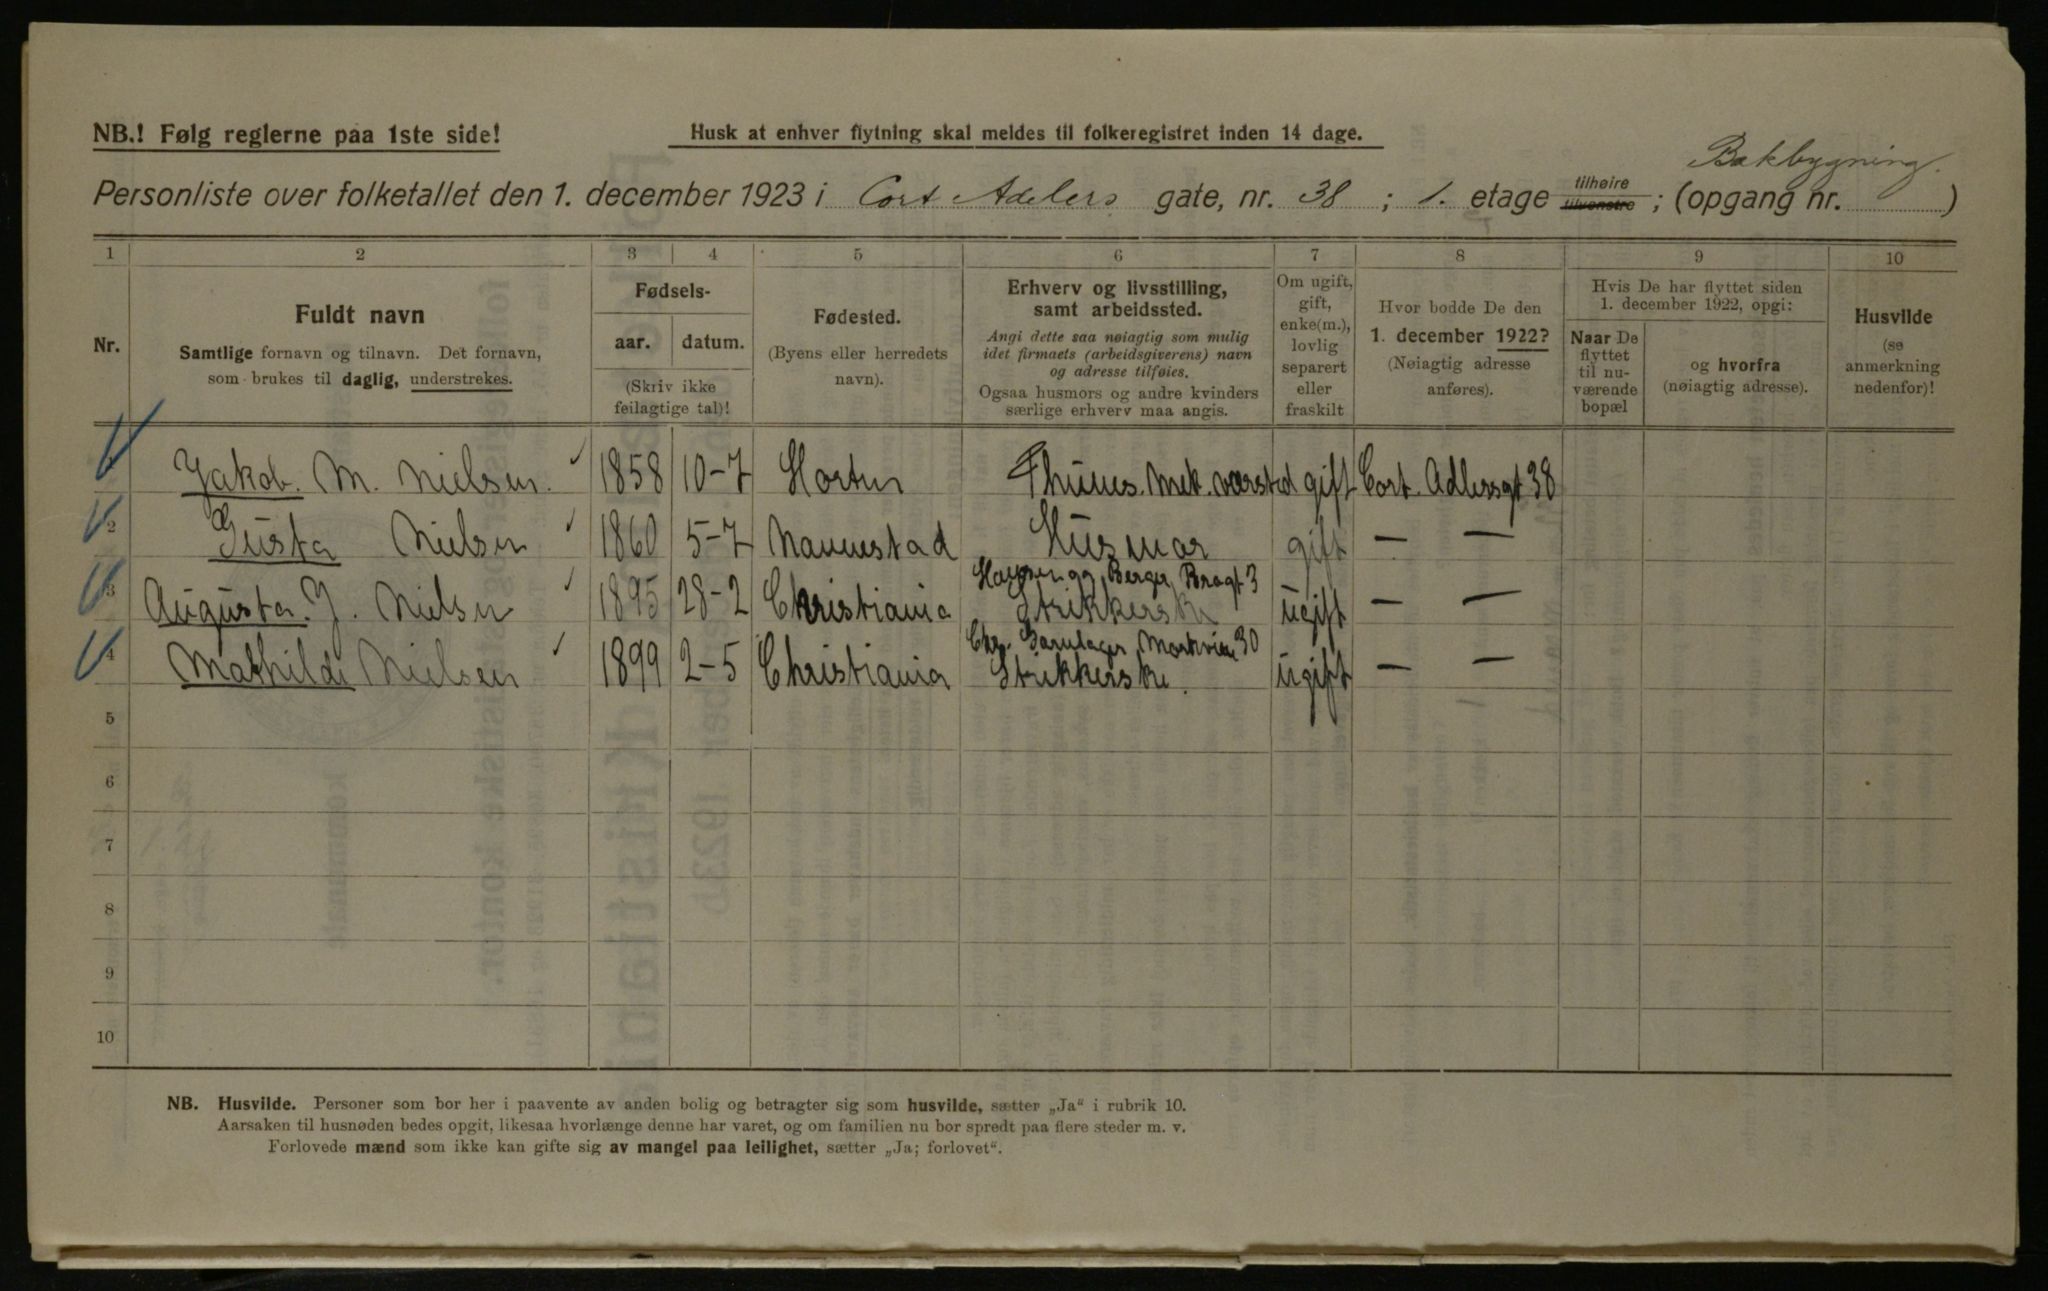 NB.! Følg reglerne paa 1ste side!
Husk at enhver flytning skal meldes til folkeregistret inden 14 dage.
Bakbygning.
Personliste over folketallet den 1. december 1923 i Cort Adelers gate, nr. 38 ; 1. etage tilhøire tilvenstre ; (opgang nr. )
1 2 3 4 5 6 7 8 9 10
Nr.
Fuldt navn
Samtlige fornavn og tilnavn. Det fornavn,
som brukes til daglig, understrekes.
Fødsels-
aar. datum.
(Skriv ikke
feilagtige tal)!
Fødested.
(Byens eller herredets
navn).
Erhverv og livsstilling,
samt arbeidssted.
Angi dette saa nøiagtig som mulig
idet firmaets (arbeidsgiverens) navn
og adresse tilføies.
Ogsaa husmors og andre kvinders
særlige erhverv maa angis.
Om ugift,
gift,
enke(m.),
lovlig
separert
eller
fraskilt
Hvor bodde De den
1. december 1922?
(Nøiagtig adresse
anføres).
Hvis De har flyttet siden
1. december 1922, opgi:
Naar De
flyttet
til nu-
værende
bopæl
og hvorfra
(nøiagtig adresse).
Husvilde
(se
anmerkning
nedenfor)!
1 Jakob. M. Nielsen. 1858 10-7 Horten Mek. værsted gift Cort. Adlersgt 38
2 Gusta Nielsen 1860 5-7 Nannestad Husmor gift — —
Berger Bragt 3
3 Augusta. J. Nielsen 1895 28-2 Christiania Strikkerske ugift — —
Chr. Garnlager Markvien 30
4 Mathilde Nielsen 1899 2-5 Christiania Strikkerske. ugift — —
5
6
7
8
9
10
NB. Husvilde. Personer som bor her i paavente av anden bolig og betragter sig som husvilde, sætter „Ja“ i rubrik 10.
Aarsaken til husnøden bedes opgit, likesaa hvorlænge denne har varet, og om familien nu bor spredt paa flere steder m. v.
Forlovede mænd som ikke kan gifte sig av mangel paa leilighet, sætter „Ja; forlovet“.